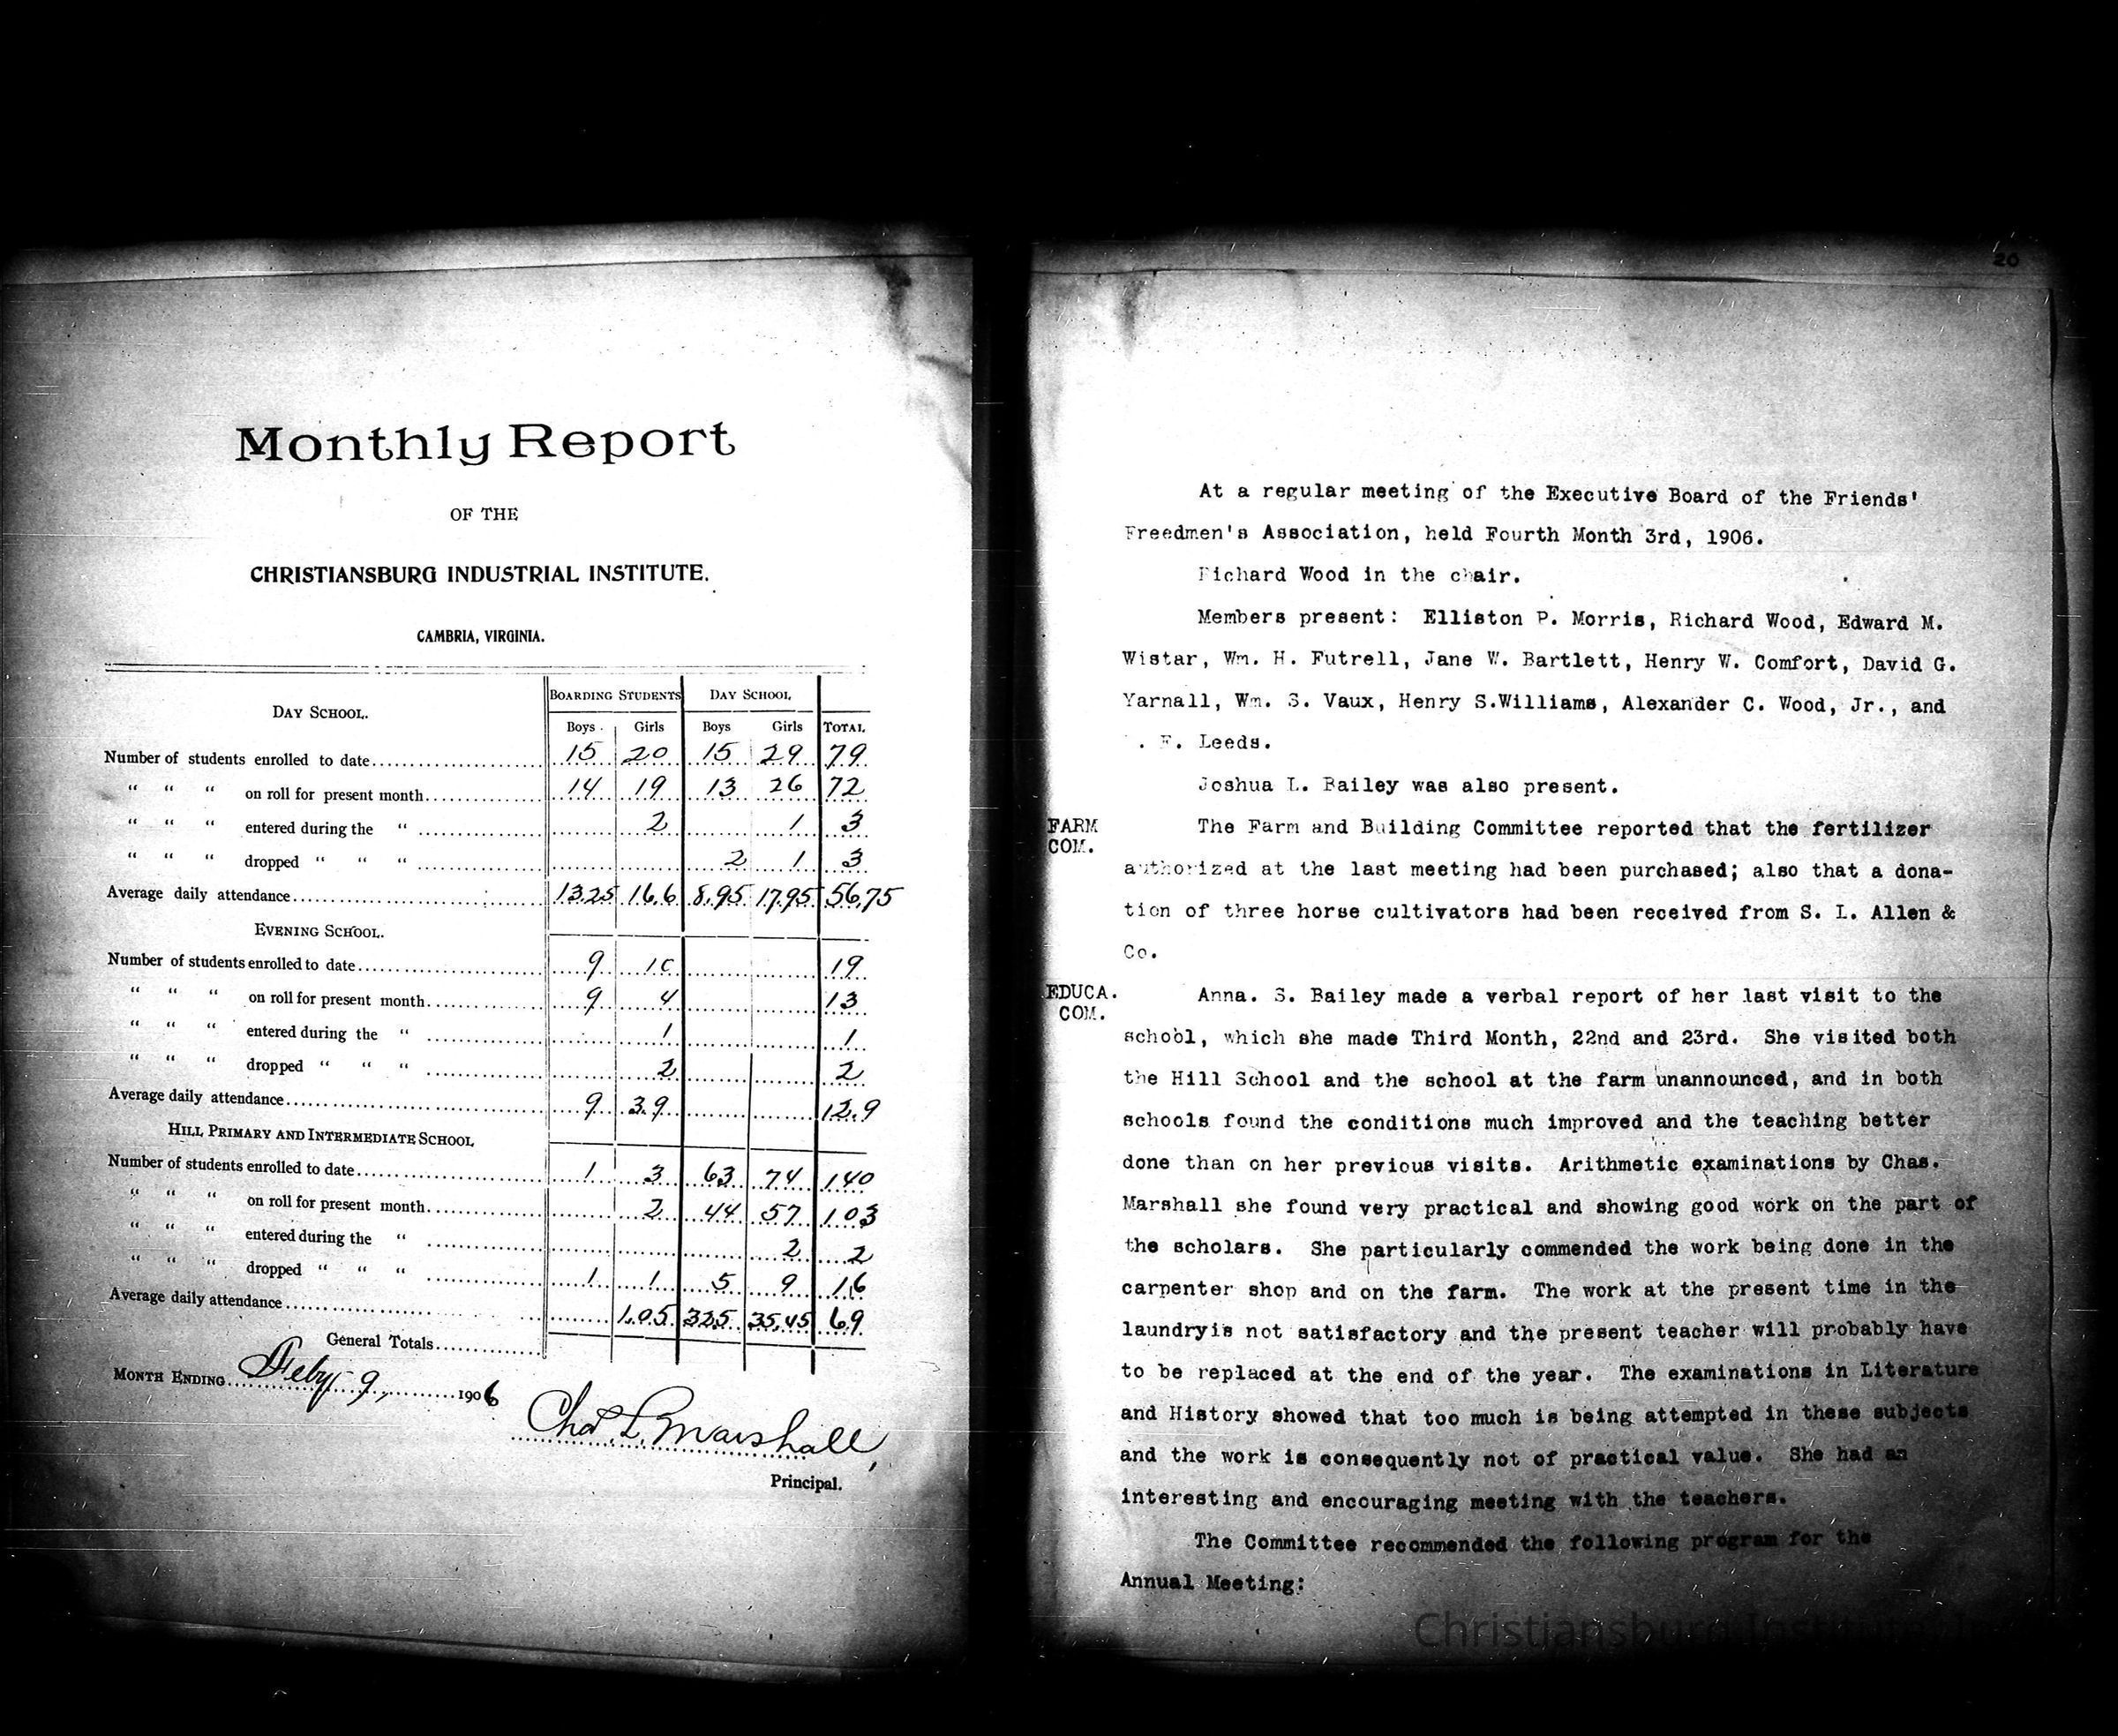 Monthly Report
OF THE
CHRISTIANSBURG INDUSTRIAL INSTITUTE.
CAMBRIA, VIRGINIA.
DAY SCHOOL. BOARDING STUDENTS DAY SCHOOL
Boys Girls Boys Girls TOTAL
Number of students enrolled to date 15 20 15 29 79
" " " on roll for present month 14 19 13 26 72
" " " entered during the " 2 1 3
" " " dropped " " " 2 1 3
Average daily attendance 13.25 16.6 8.95 17.95 56.75
EVENING SCHOOL.
Number of students enrolled to date 9 10 19
" " " on roll for present month 9 4 13
" " " entered during the " 1 1
" " " dropped " " " 2 2
Average daily attendance 9 3.9 12.9
HILL PRIMARY AND INTERMEDIATE SCHOOL
Number of students enrolled to date 1 3 63 74 140
" " " on roll for present month 2 44 57 103
" " " entered during the " 2 2
" " " dropped " " " 1 1 5 9 16
Average daily attendance 1.05 32.5 35.45 69
General Totals
MONTH ENDING Feby 9, 1906
Chas L. Marshall,
Principal.
20
At a regular meeting of the Executive Board of the Friends'
Freedmen's Association, held Fourth Month 3rd, 1906.
Richard Wood in the chair.
Members present: Elliston P. Morris, Richard Wood, Edward M.
Wistar, Wm. H. Futrell, Jane W. Bartlett, Henry W. Comfort, David G.
Yarnall, Wm. S. Vaux, Henry S.Williams, Alexander C. Wood, Jr., and
. F. Leeds.
Joshua L. Bailey was also present.
FARM
COM.
The Farm and Building Committee reported that the fertilizer
authorized at the last meeting had been purchased; also that a dona-
tion of three horse cultivators had been received from S. L. Allen &
Co.
EDUCA.
COM.
Anna. S. Bailey made a verbal report of her last visit to the
school, which she made Third Month, 22nd and 23rd. She visited both
the Hill School and the school at the farm unannounced, and in both
schools found the conditions much improved and the teaching better
done than on her previous visits. Arithmetic examinations by Chas.
Marshall she found very practical and showing good work on the part of
the scholars. She particularly commended the work being done in the
carpenter shop and on the farm. The work at the present time in the
laundryis not satisfactory and the present teacher will probably have
to be replaced at the end of the year. The examinations in Literature
and History showed that too much is being attempted in these subjects
and the work is consequently not of practical value. She had an
interesting and encouraging meeting with the teachers.
The Committee recommended the following program for the
Annual Meeting:
Christiansburg Institute